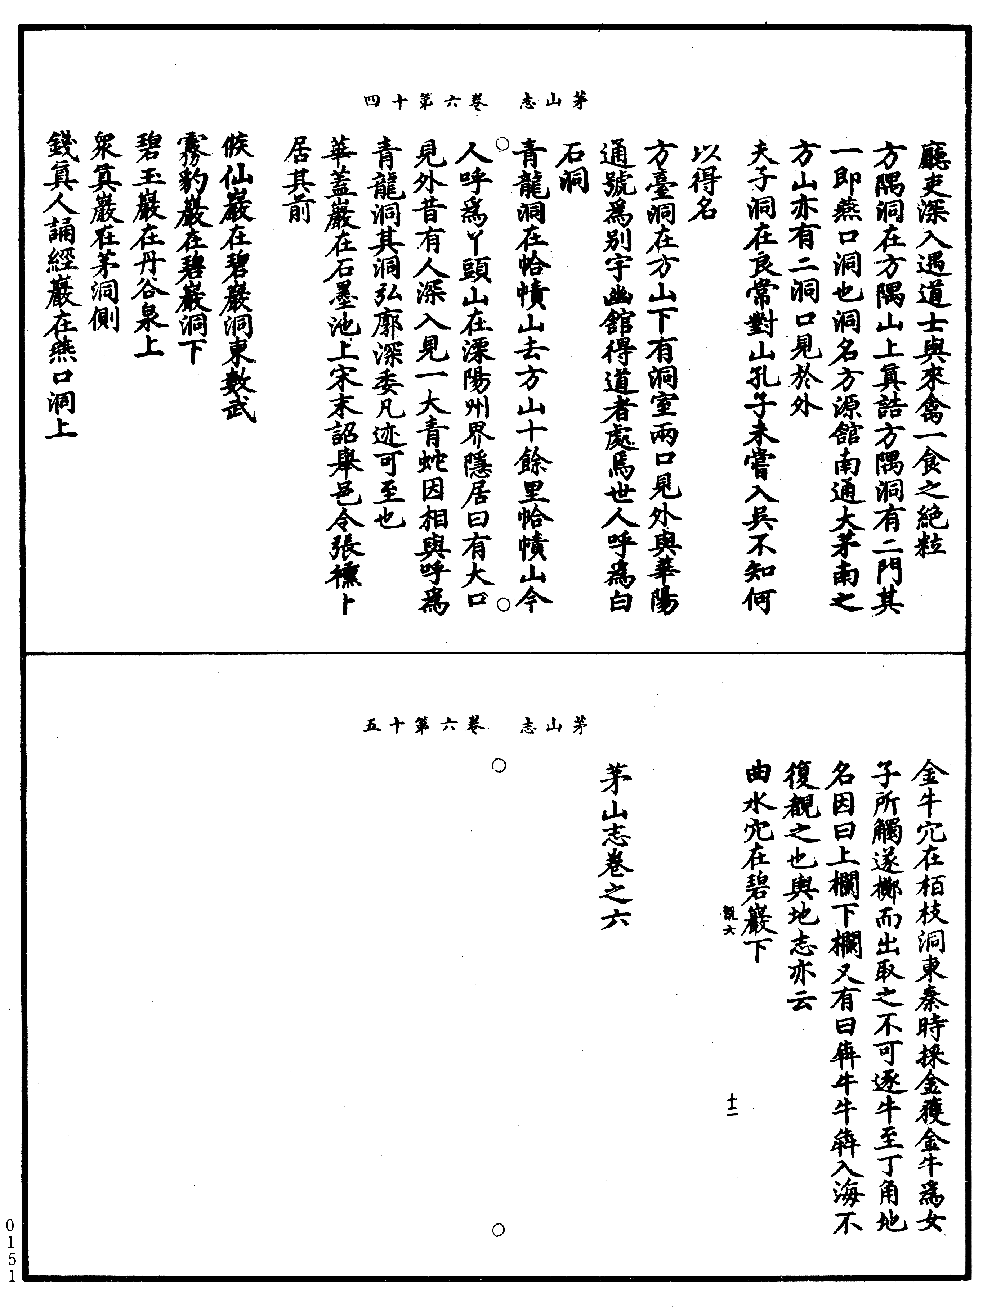 茅山志　卷六第十四
廳吏深入遇道士與來禽一食之絶粒
方隅洞在方隅山上真誥方隅洞有二門其
一即燕口洞也洞名方源館南通大茅南之
方山亦有二洞口見於外
夫子洞在良常對山孔子未嘗入吳不知何
以得名
方臺洞在方山下有洞室兩口見外與華陽
通號爲别宇幽館得道者處焉世人呼爲白
石洞
青龍洞在帢幘山去方山十餘里帢幘山今
人呼爲丫頭山在溧陽州界隱居曰有大口
見外昔有人深入見一大青蛇因相與呼爲
青龍洞其洞弘廓深委凡迹可至也
華蓋巖在石墨池上宋末詔舉邑令張㯱卜
居其前
候仙巖在碧巖洞東數武
霧豹巖在碧巖洞下
碧玉巖在丹谷泉上
衆真巖在茅洞側
錢真人誦經巖在燕口洞上
茅山志　卷六第十五
金牛穴在栢枝洞東秦時採金獲金牛爲女
子所觸遂擲而出取之不可逐牛至丁角地
名因曰上欄下欄又有曰犇牛牛犇入海不
復覩之也輿地志亦云
曲水穴在碧巖下
觀六
十二
茅山志卷之六
0151